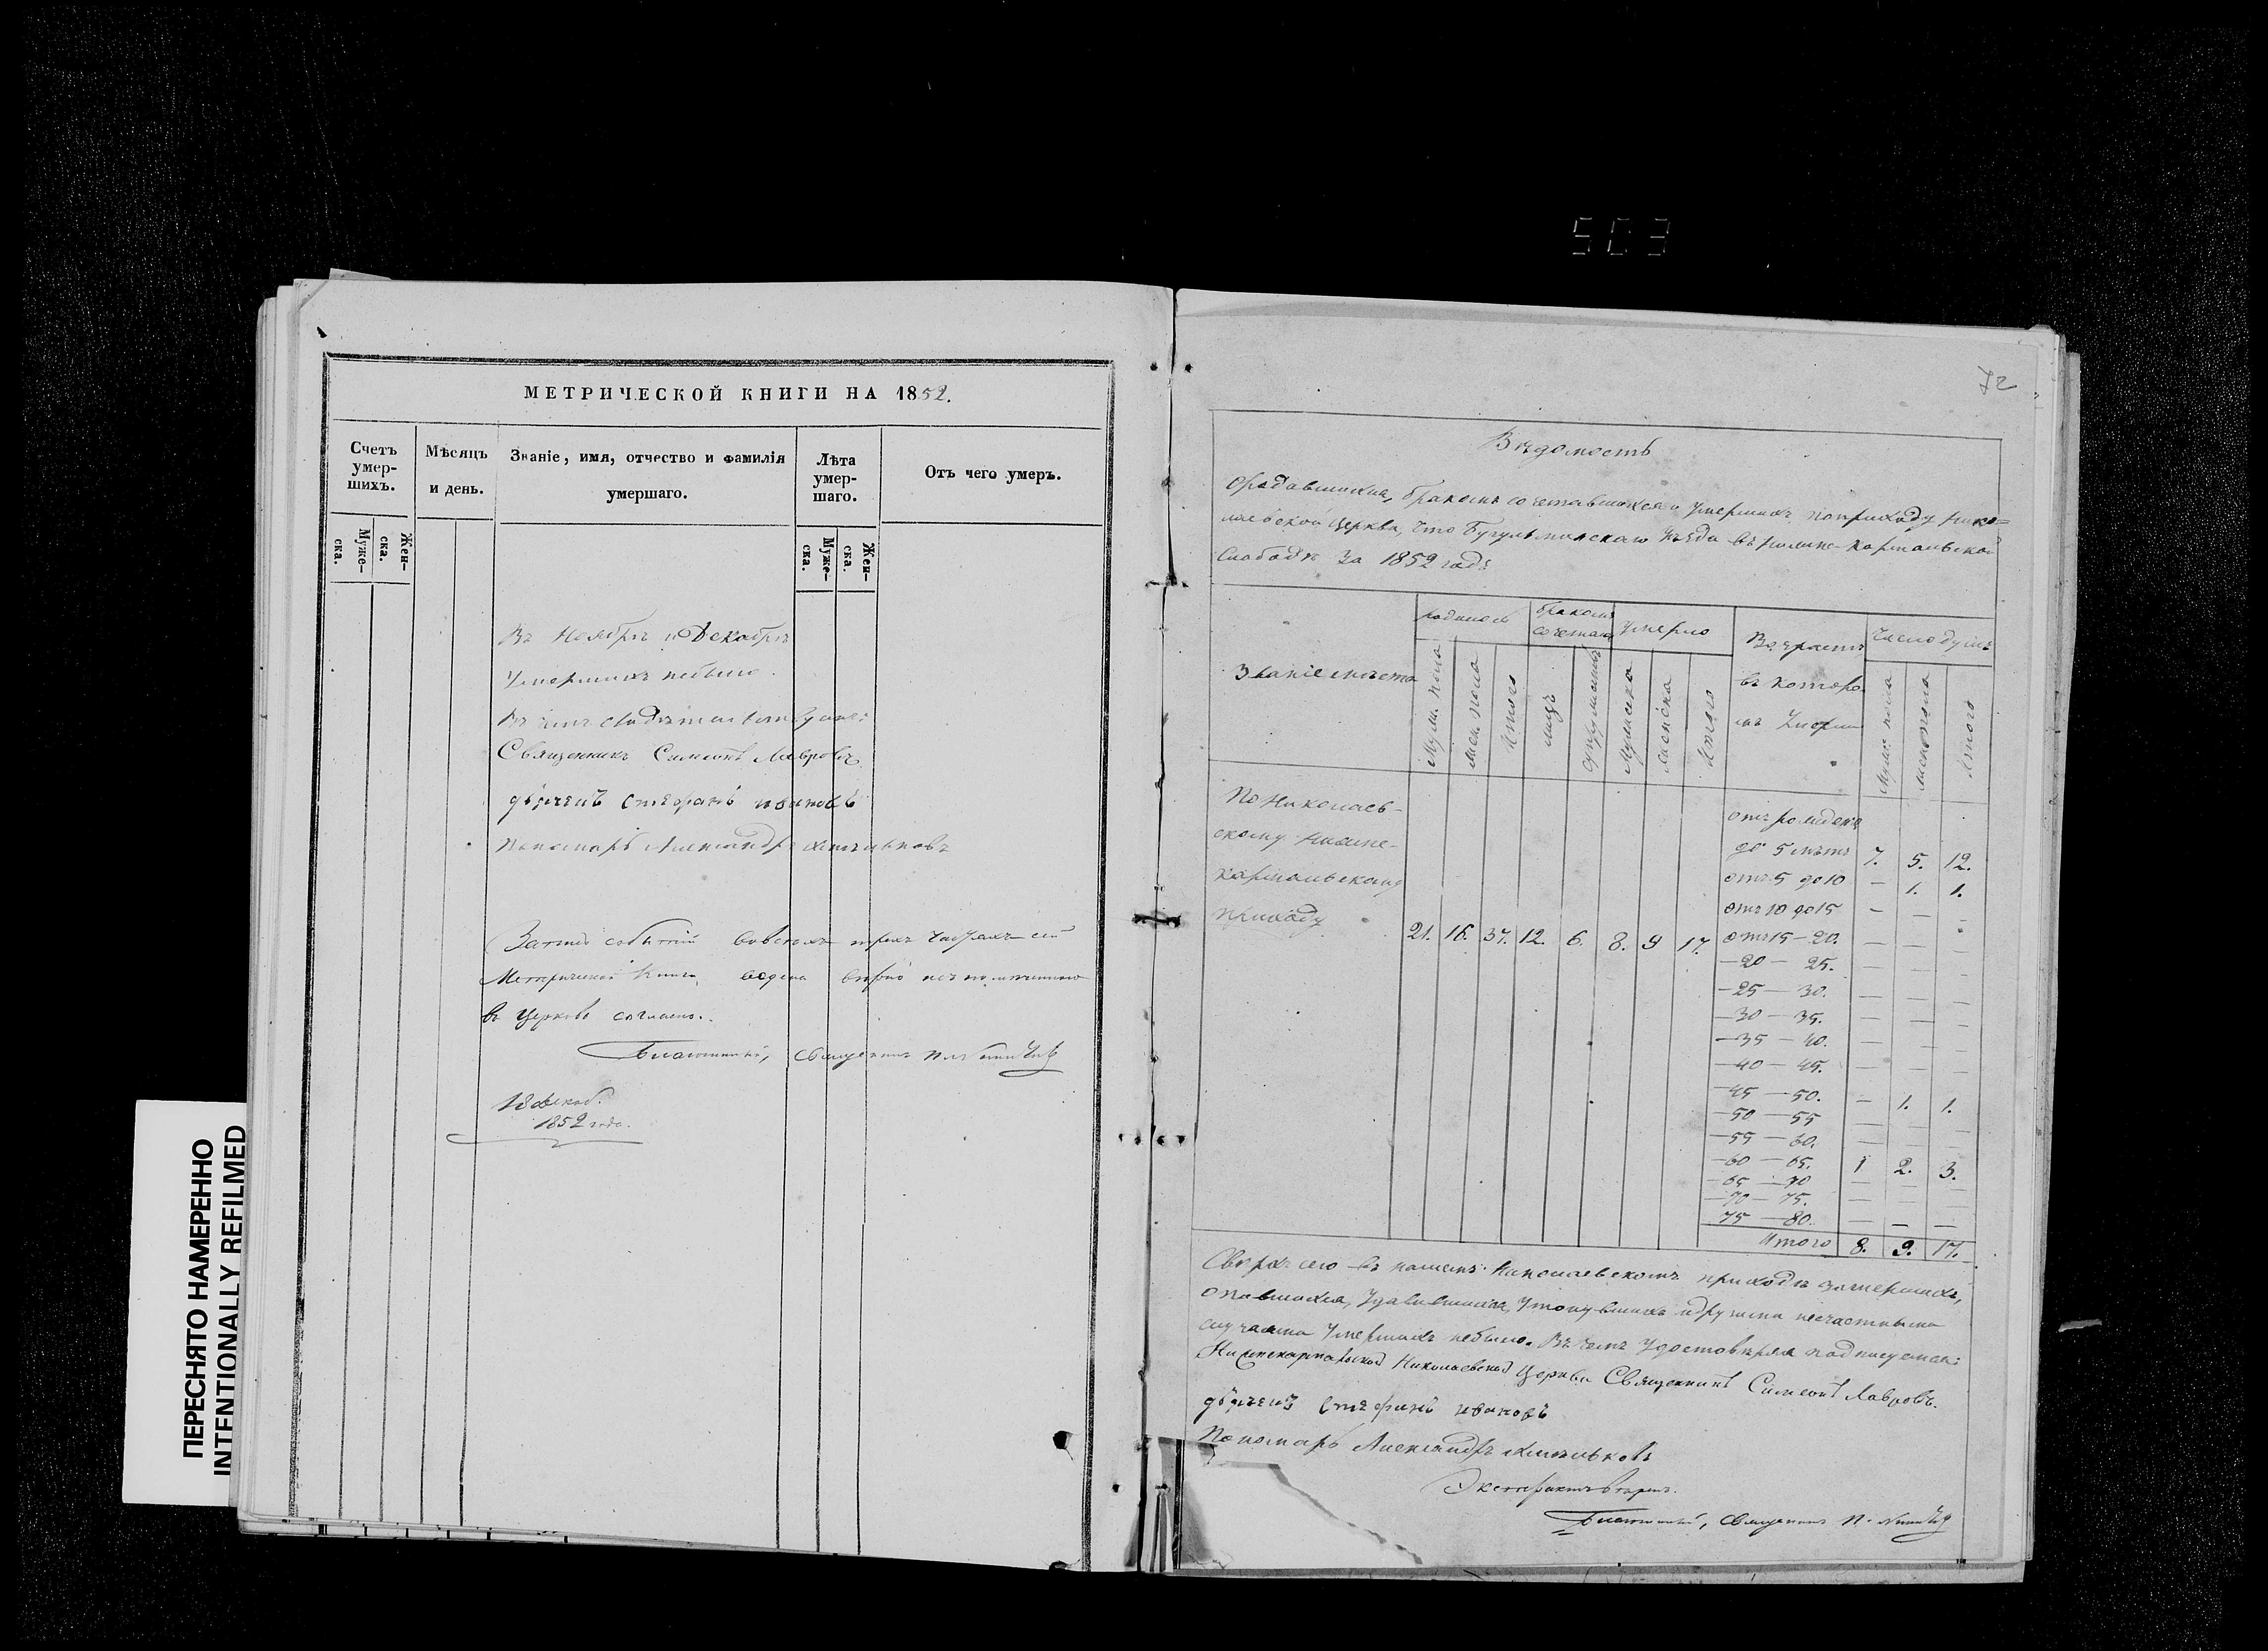 503
МЕТРИЧЕСКОЙ КНИГИ НА 1852.
Счетъ умер-шихъ.
Мѣсяцъ и день.
Званіе, имя, отчество и фамилія умершаго.
Лѣта умер-шаго.
Отъ чего умеръ.
Муже-ска.
Жен-ска.
Муже-ска.
Жен-ска.
Въ Ноябрѣ и Декабрѣ
Умершихъ небыло.
Въ чемъ свидѣтельствуемъ:
Священникъ Симеонъ Лавровъ
дьячекъ Стефанъ ивановъ
Пономарь Александръ
событій вовсѣхъ трехъ частяхъ сей
Метрической Книги ведена вѣрно
въ Церковь согласно.
Благочинный, Священникъ
18 Декаб.
1852 года.
ПЕРЕСНЯТО НАМЕРЕННО
INTENTIONALLY REFILMED
72
Вѣдомость
Ородившихся, бракомъ сочетавшихся и умершихъ поприходу Нико=
лаевской Церкви, что Бугульминскаго Уѣзда въ Кармальской
Слободѣ За 1852 годъ
Званіе мѣста
родилось
бракомъ сочетан
умерло
Возрастъ
въ которо
мъ Умерли
Число душъ
Муж. пола
жен. пола
Итого
лицъ
супружествъ
Мужеска
женска
Итого
Муж. пола
жен пола
Итого
По Николаев-
скому Нижне-
кармальскому
приходу
21. 16. 37. 12. 6. 8. 9 17.
отъ рожденія
до 5 лѣтъ 7. 5. 12.
отъ 5 до 10 — 1. 1.
отъ 10 до 15 — — -
отъ 15 — 20. — — —
— 20 — 25. — — —
— 25 — 30. — — —
— 30 — 35. — — —
— 35 — 40. — — —
— 40 — 45. — — —
— 45 — 50. — 1. 1.
— 50 — 55 — — —
— 55 — 60. — — —
— 60 — 65. 1 2. 3.
— 65 — 70 — — —
— 70 — 75. — — —
75 — 80. — — —
Итого 8. 9. 17.
Сверхъ сего въ нашемъ Николаевскомъ приходѣ
опившихся, Удавившихся, Утонувшихъ идругими несчастными
случаями Умершихъ небыло. Въ чемъ Удостовѣряя подписуемся:
Нижнекармальской Николаевской Церкви Священникъ Симеонъ Лавровъ.
дьячекъ Стефанъ ивановъ
Пономарь Александръ
Благочинный, Священникъ П.